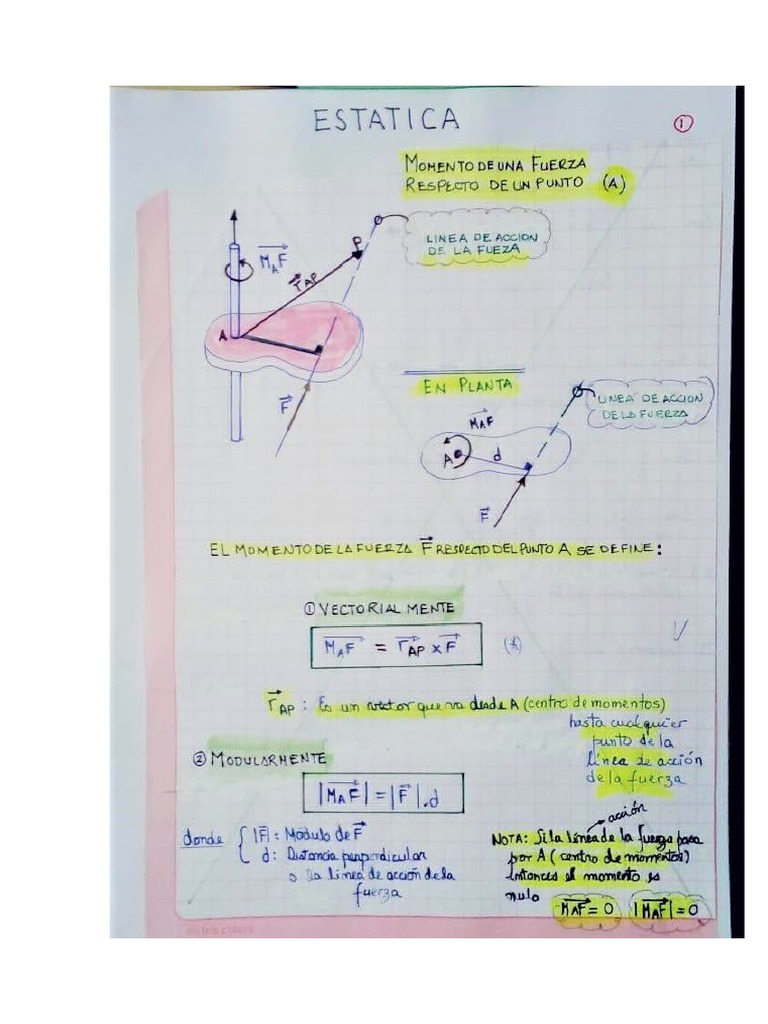 ESTATICA
①
MOMENTO DE UNA FUERZA
RESPECTO DE UN PUNTO (A)
LINEA DE ACCION
DE LA FUEZA
P
M_AF
r_AP
A
F
EN PLANTA
LINEA DE ACCION
DE LA FUERZA
M_AF
A
d
F
EL MOMENTO DE LA FUERZA F RESPECTO DEL PUNTO A SE DEFINE:
① VECTORIALMENTE
M_AF = r_AP x F (*)
r_AP : Es un vector que va desde A (centro de momentos)
hasta cualquier
punto de la
línea de acción
de la fuerza
② MODULARMENTE
|M_AF| = |F| . d
donde { |F| : Módulo de F
d : Distancia perpendicular
a la línea de acción de la
fuerza
acción
NOTA: Si la línea de la fuerza pasa
por A (centro de momentos)
entonces el momento es
nulo M_AF = 0 |M_AF| = 0